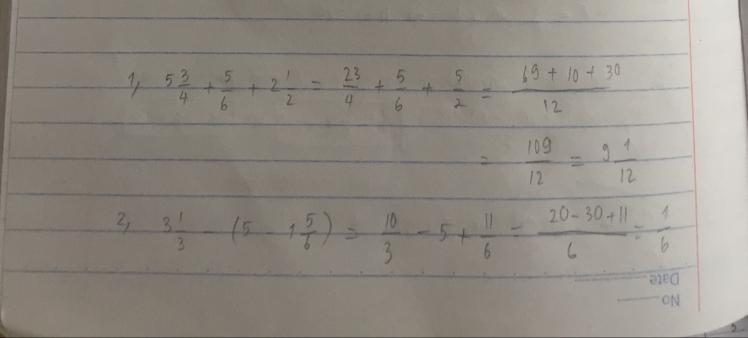 1, 5 3/4 + 5/6 + 2 1/2 = 23/4 + 5/6 + 5/2 = (69 + 10 + 30)/12
= 109/12 = 9 1/12
2, 3 1/3 - (5 - 1 5/6) = 10/3 - 5 + 11/6 = (20 - 30 + 11)/6 = 1/6
Date
No